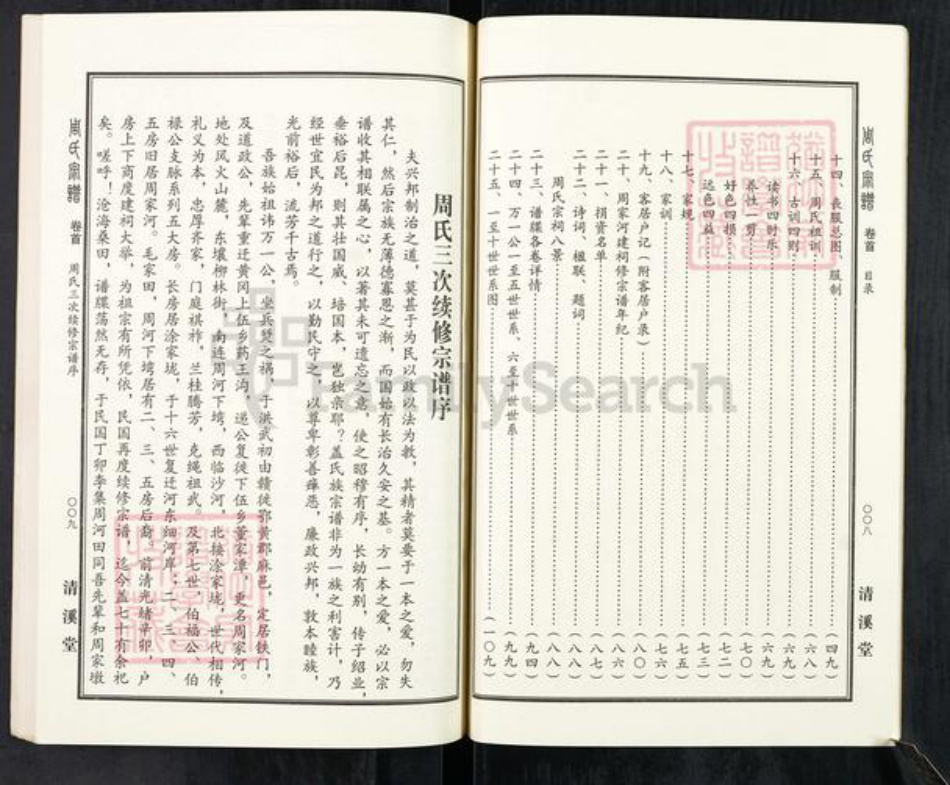 周氏宗谱 卷首 目录 〇〇八 清溪堂
十四、丧服总图、服制(四九)
十五、周氏祖训(六八)
十六、古训四则(六九)
读书四时乐(六九)
养性一剪(七〇)
好色四损(七二)
远色四益(七三)
十七、家规(七五)
十八、家训(七六)
十九、客居户记(附客居户录)(八〇)
二十、周家河建祠修宗谱年纪(八六)
二十一、捐资名单(八七)
二十二、诗词、楹联、题词(八八)
周氏宗祠八景(八八)
二十三、谱牒各卷详情(九四)
二十四、万一公一至五世世系、六至十世世系(九九)
二十五、一至十世世系图(一〇九)
周氏三次续修宗谱序
夫兴邦制治之道,莫甚于为民以政以法为教,其精者莫要于一本之爱,勿失
其仁,然后宗族无薄德寡恩之渐,而国始有长治久安之基。方一本之爱,必以宗
谱收其相联属之心,以著其未可遗忘之意,使之昭穆有序,长幼有别,传子绍业,
垂裕后昆,则其壮国威、培国本,岂独亲耶?盖氏族宗谱非为一族之利害计,乃
经世宜民为邦之道行之,以勤民守之,以尊卑彰善瘅恶,廉政兴邦,敦本睦族,
光前裕后,流芳千古焉。
吾族始祖讳万一公,坐兵燹之祸,于洪武初由赣徙鄂黄郡麻邑,定居铁门,
及道政公,先辈重迁黄冈上伍乡药王沟,遂公复徙下伍乡董家漳,更名周家河。
地处风火山麓,东壤柳林街,南连周河下塆,西临沙河,北接涂家垅,世代相传,
礼义为本,忠厚齐家,门庭祺祚,兰桂腾芳,克绳祖武。及第七世,伯福公、伯
禄公支脉系列五大房。长房居涂家垅,于十六世复迁河东细河岸;二、三、四、
五房旧居周家河。毛家田,周河下塆居有二、三、五房后裔。前清光绪辛卯,户
房上下商度建祠大举,为祖宗有所凭依,民国再度续修宗谱,迄今盖七十有余祀
矣。嗟呼!沧海桑田,谱牒荡然无存,于民国丁卯季集周河田同吾先辈和周家墩
周氏宗谱 卷首 周氏三次续修宗谱序 〇〇九 清溪堂
FamilySearch